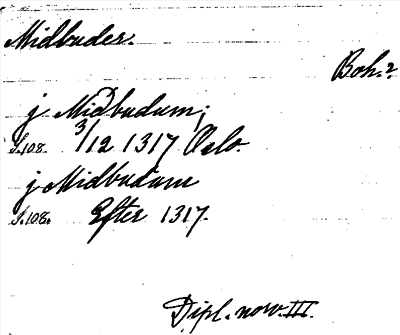 Midbuder.
Boh.?
j Midbudum;
S.108. 3/12 1317 Oslo.
j Midbudum
S.108. Efter 1317.
Dipl. norv. III.